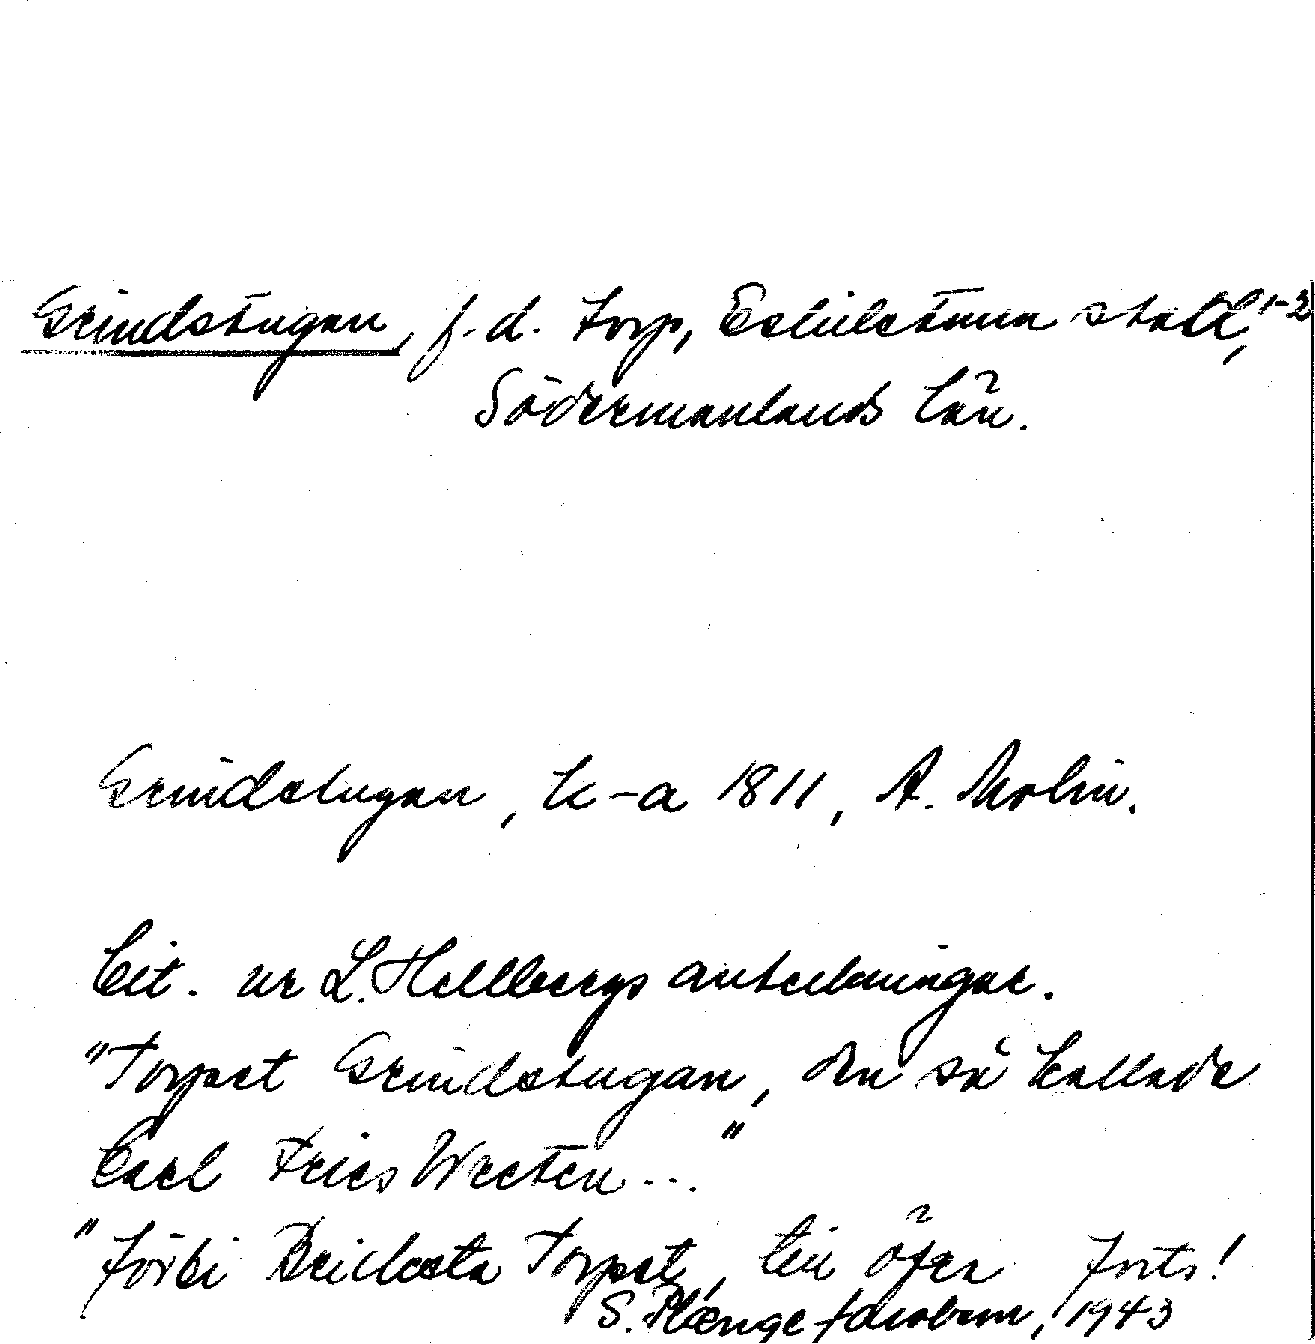 Grindstugan, f.d. torp, Eskilstuna stad, 1-3
Södermanlands län.
Grindstugan, k-a 1811, A. Molin.
Cit. ur L. Hellbergs anteckningar.
"Torpet Grindstugan, den så kallade
Carl Fries Wreten..."
"förbi Torpet, till öfer forts!
S. Plænge Jacobson, 1943